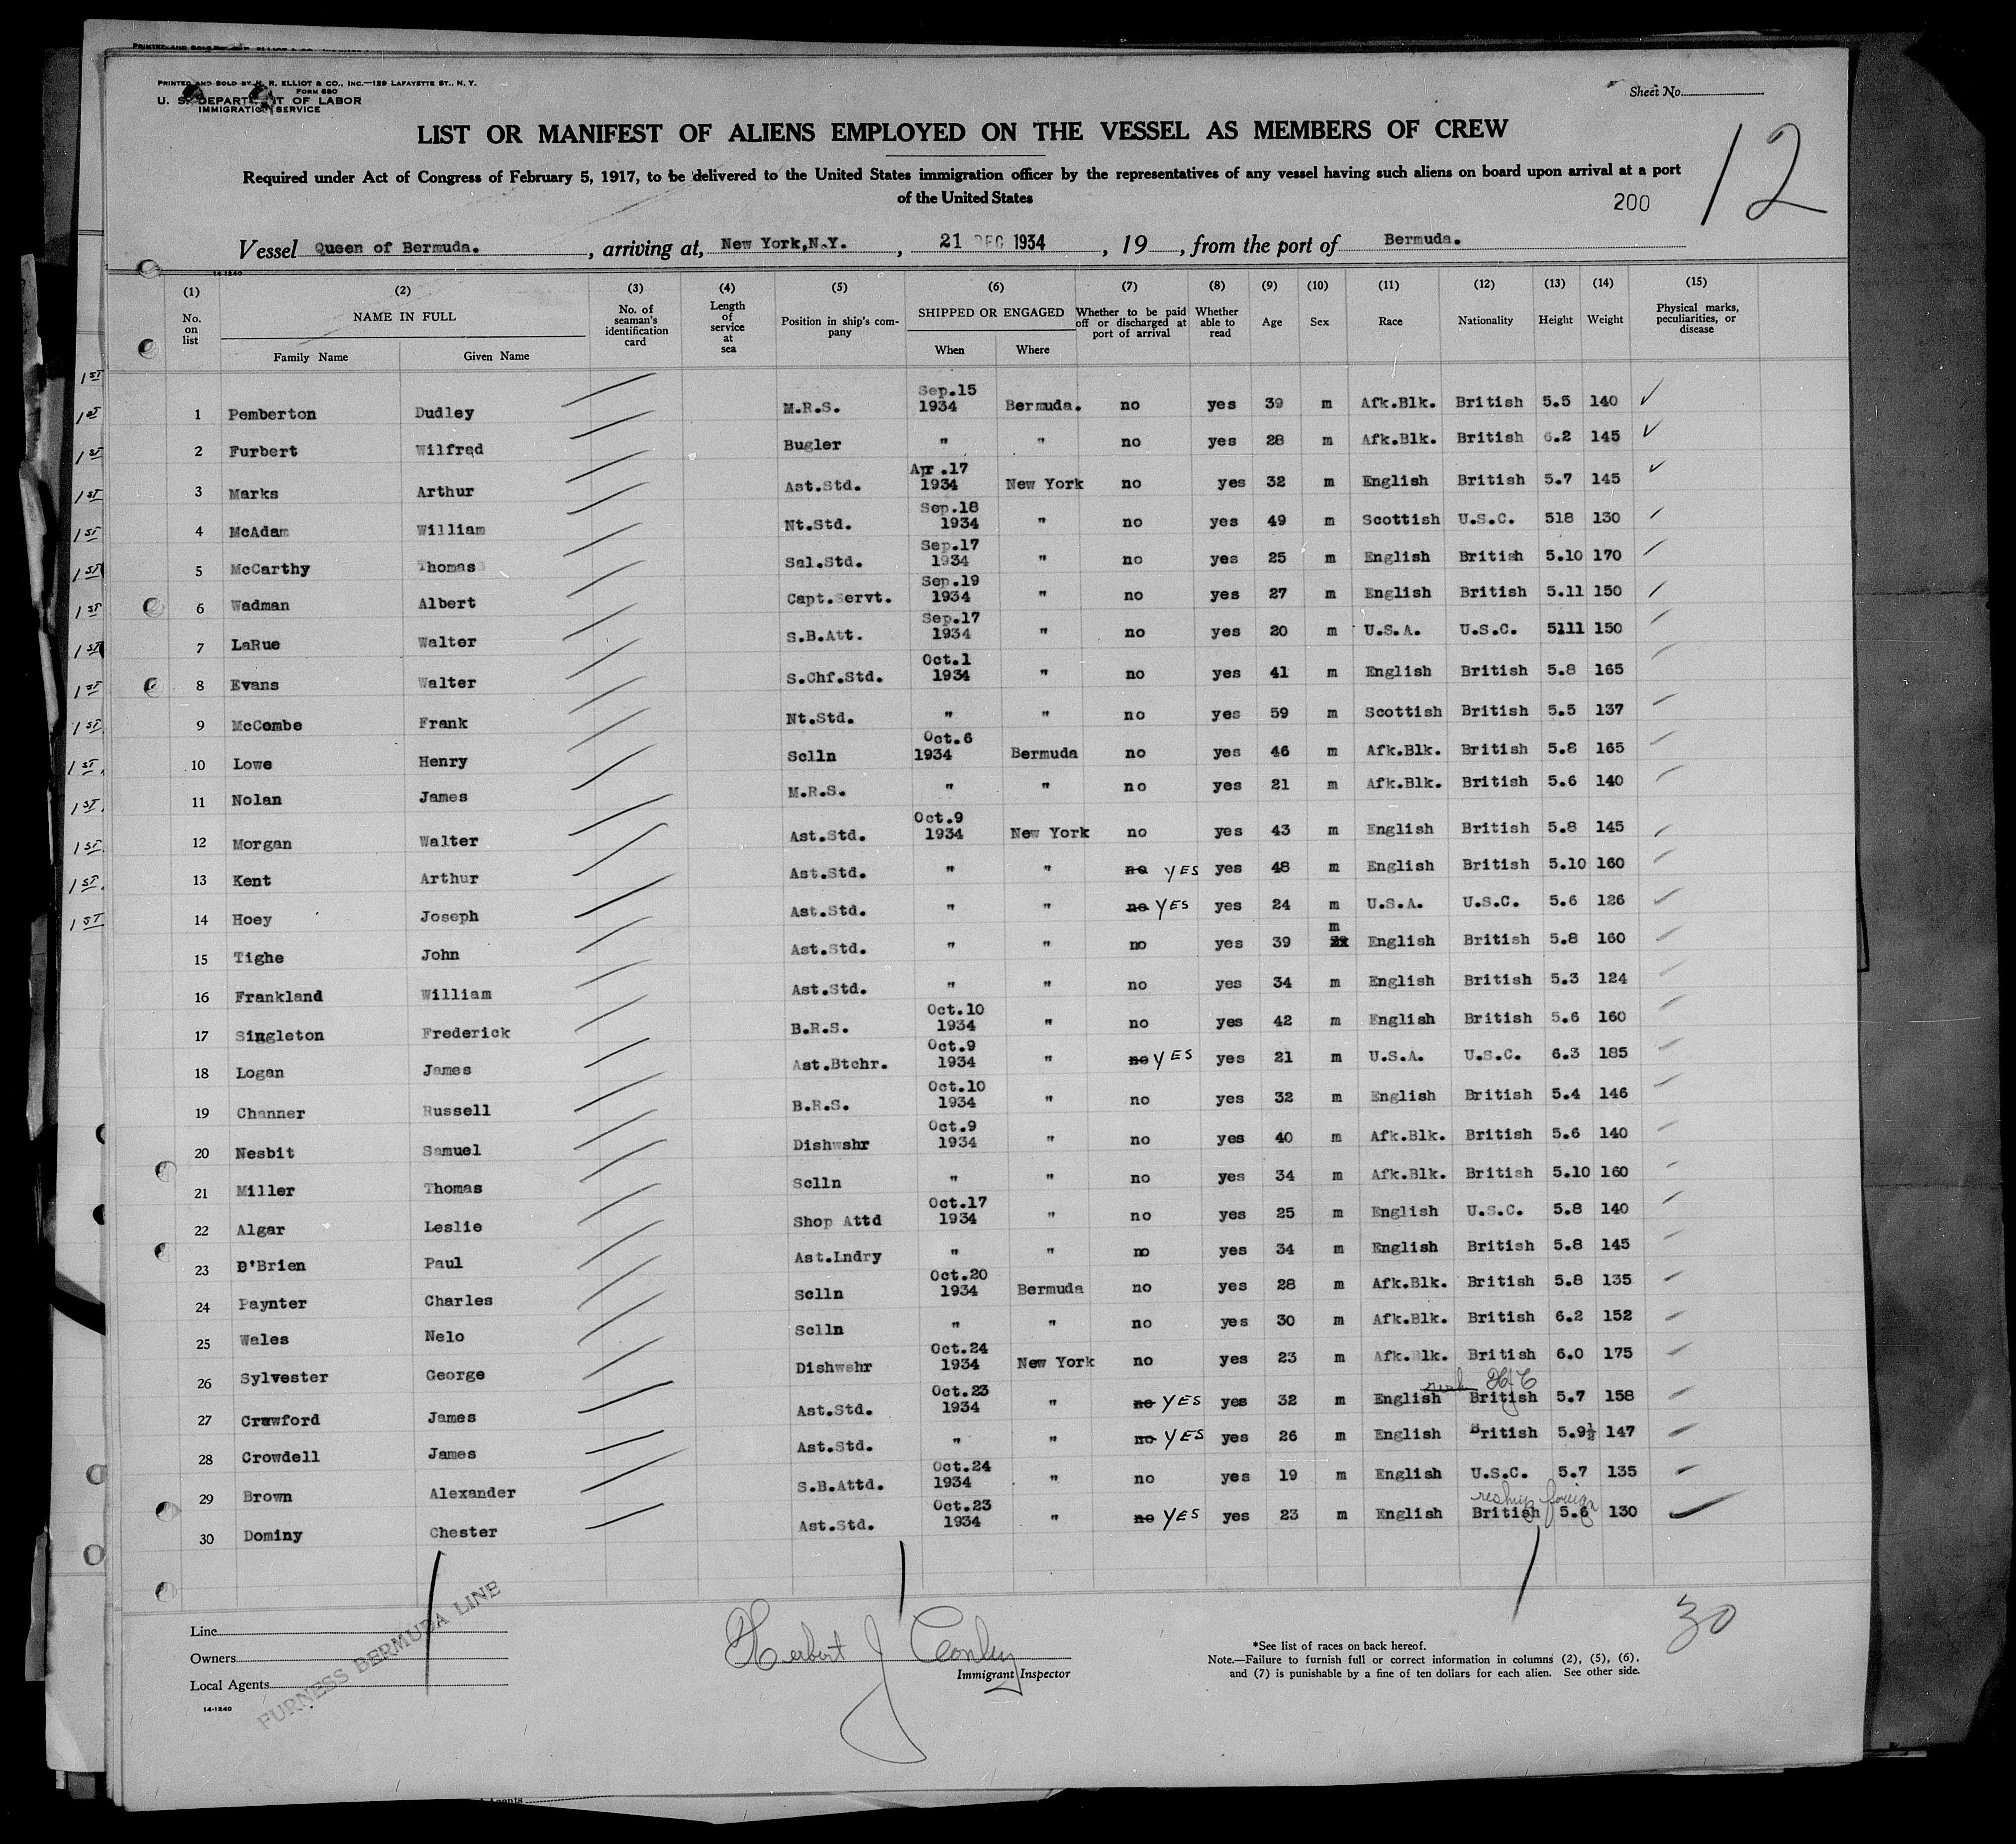 PRINTED AND SOLD BY H. R. ELLIOT & CO., INC.—129 LAFAYETTE ST., N. Y.
FORM 680
U. S. DEPARTMENT OF LABOR
IMMIGRATION SERVICE
Sheet No.
LIST OR MANIFEST OF ALIENS EMPLOYED ON THE VESSEL AS MEMBERS OF CREW
12
Required under Act of Congress of February 5, 1917, to be delivered to the United States immigration officer by the representatives of any vessel having such aliens on board upon arrival at a port
of the United States
200
Vessel Queen of Bermuda. , arriving at, New York,N.Y. , 21 DEC 1934 , 19 , from the port of Bermuda.
14-1240
(1) (2) (3) (4) (5) (6) (7) (8) (9) (10) (11) (12) (13) (14) (15)
No. on list NAME IN FULL Family Name Given Name No. of seaman's identification card Length of service at sea Position in ship's company SHIPPED OR ENGAGED When Where Whether to be paid off or discharged at port of arrival Whether able to read Age Sex Race Nationality Height Weight Physical marks, peculiarities, or disease
1st
1st 1 Pemberton Dudley M.R.S. Sep.15 1934 Bermuda. no yes 39 m Afk.Blk. British 5.5 140 ✓
1st 2 Furbert Wilfred Bugler " " no yes 28 m Afk.Blk. British 6.2 145 ✓
1st 3 Marks Arthur Ast.Std. Apr.17 1934 New York no yes 32 m English British 5.7 145 ✓
1st 4 McAdam William Nt.Std. Sep.18 1934 " no yes 49 m Scottish U.S.C. 518 130
1st 5 McCarthy Thomas Sal.Std. Sep.17 1934 " no yes 25 m English British 5.10 170
1st 6 Wadman Albert Capt.Servt. Sep.19 1934 " no yes 27 m English British 5.11 150
1st 7 LaRue Walter S.B.Att. Sep.17 1934 " no yes 20 m U.S.A. U.S.C. 5111 150
1st 8 Evans Walter S.Chf.Std. Oct.1 1934 " no yes 41 m English British 5.8 165
1st 9 McCombe Frank Nt.Std. " " no yes 59 m Scottish British 5.5 137
1st. 10 Lowe Henry Sclln Oct.6 1934 Bermuda no yes 46 m Afk.Blk. British 5.8 165
1st. 11 Nolan James M.R.S. " " no yes 21 m Afk.Blk. British 5.6 140
1st. 12 Morgan Walter Ast.Std. Oct.9 1934 New York no yes 43 m English British 5.8 145
1st. 13 Kent Arthur Ast.Std. " " no YES yes 48 m English British 5.10 160
1st 14 Hoey Joseph Ast.Std. " " no YES yes 24 m U.S.A. U.S.C. 5.6 126
15 Tighe John Ast.Std. " " no yes 39 m English British 5.8 160
16 Frankland William Ast.Std. " " no yes 34 m English British 5.3 124
17 Singleton Frederick B.R.S. Oct.10 1934 " no yes 42 m English British 5.6 160
18 Logan James Ast.Btchr. Oct.9 1934 " no YES yes 21 m U.S.A. U.S.C. 6.3 185
19 Channer Russell B.R.S. Oct.10 1934 " no yes 32 m English British 5.4 146
20 Nesbit Samuel Dishwshr Oct.9 1934 " no yes 40 m Afk.Blk. British 5.6 140
21 Miller Thomas Sclln " " no yes 34 m Afk.Blk. British 5.10 160
22 Algar Leslie Shop Attd Oct.17 1934 " no yes 25 m English U.S.C. 5.8 140
23 O'Brien Paul Ast.Lndry " " no yes 34 m English British 5.8 145
24 Paynter Charles Sclln Oct.20 1934 Bermuda no yes 28 m Afk.Blk. British 5.8 135
25 Wales Nelo Sclln " " no yes 30 m Afk.Blk. British 6.2 152
26 Sylvester George Dishwshr Oct.24 1934 New York no yes 23 m Afk.Blk. British 6.0 175
27 Crawford James Ast.Std. Oct.23 1934 " no YES yes 32 m English British 5.7 158
28 Crowdell James Ast.Std. " " no YES yes 26 m English British 5.9½ 147
29 Brown Alexander S.B.Attd. Oct.24 1934 " no yes 19 m English U.S.C. 5.7 135
reship foreign
30 Dominy Chester Ast.Std. Oct.23 1934 " no YES yes 23 m English British 5.6 130
30
Line
Owners
Local Agents
14-1240
FURNESS BERMUDA LINE
Herbert J Conley
Immigrant Inspector
*See list of races on back hereof.
Note.—Failure to furnish full or correct information in columns (2), (5), (6),
and (7) is punishable by a fine of ten dollars for each alien. See other side.